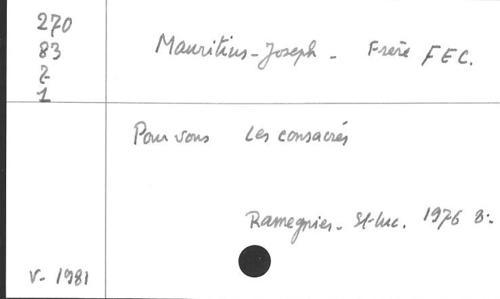 270
83
2
1
Mauritius-Joseph - Frère FEC.
Pour vous Les consacrés
Ramegnies - St-Luc. 1976 8:-
V- 1981